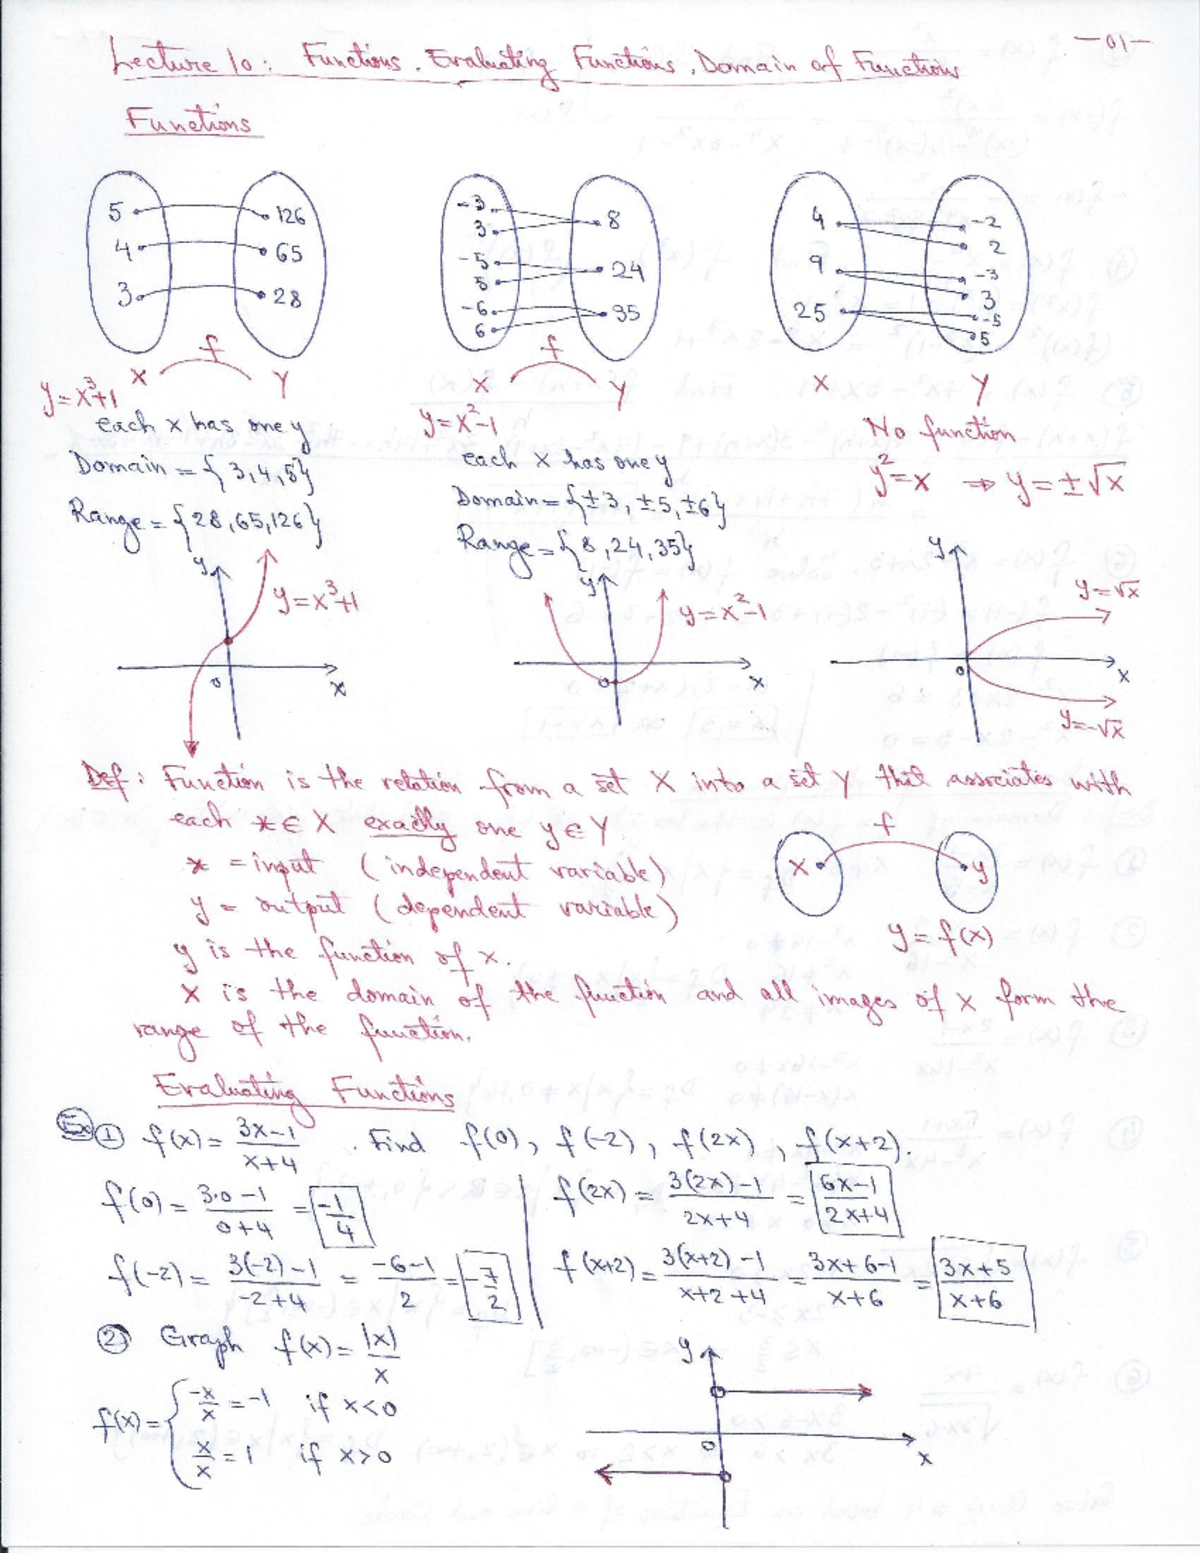 -01-
Lecture 10: Functions. Evaluating Functions, Domain of Functions
Functions
5 126
4 65
3 28
f
X Y
y=x³+1
each x has one y
Domain = {3,4,5}
Range = {28,65,126}
-3
3
-5
5
-6
6
8
24
35
f
X Y
y=x²-1
each x has one y
Domain = {±3, ±5, ±6}
Range = {8,24,35}
4
9
25
-2
2
-3
3
-5
5
X Y
No function
y²=x ⇒ y=±√x
y
y=x³+1
0
x
y
y=x²-1
0
x
y
y=√x
0
x
y=-√x
Def: Function is the relation from a set X into a set Y that associates with
each x∈X exactly one y∈Y.
x = input (independent variable)
y = output (dependent variable)
y is the function of x.
f
x y
y=f(x)
X is the domain of the function and all images of x form the
range of the function.
Evaluating Functions
Ex ① f(x) = (3x-1)/(x+4) . Find f(0), f(-2), f(2x), f(x+2).
f(0) = (3·0-1)/(0+4) = -1/4
f(2x) = (3(2x)-1)/(2x+4) = (6x-1)/(2x+4)
f(-2) = (3(-2)-1)/(-2+4) = (-6-1)/2 = -7/2
f(x+2) = (3(x+2)-1)/(x+2+4) = (3x+6-1)/(x+6) = (3x+5)/(x+6)
② Graph f(x) = |x|/x
f(x) = { -x/x = -1 if x<0
x/x = 1 if x>0
y
0
x